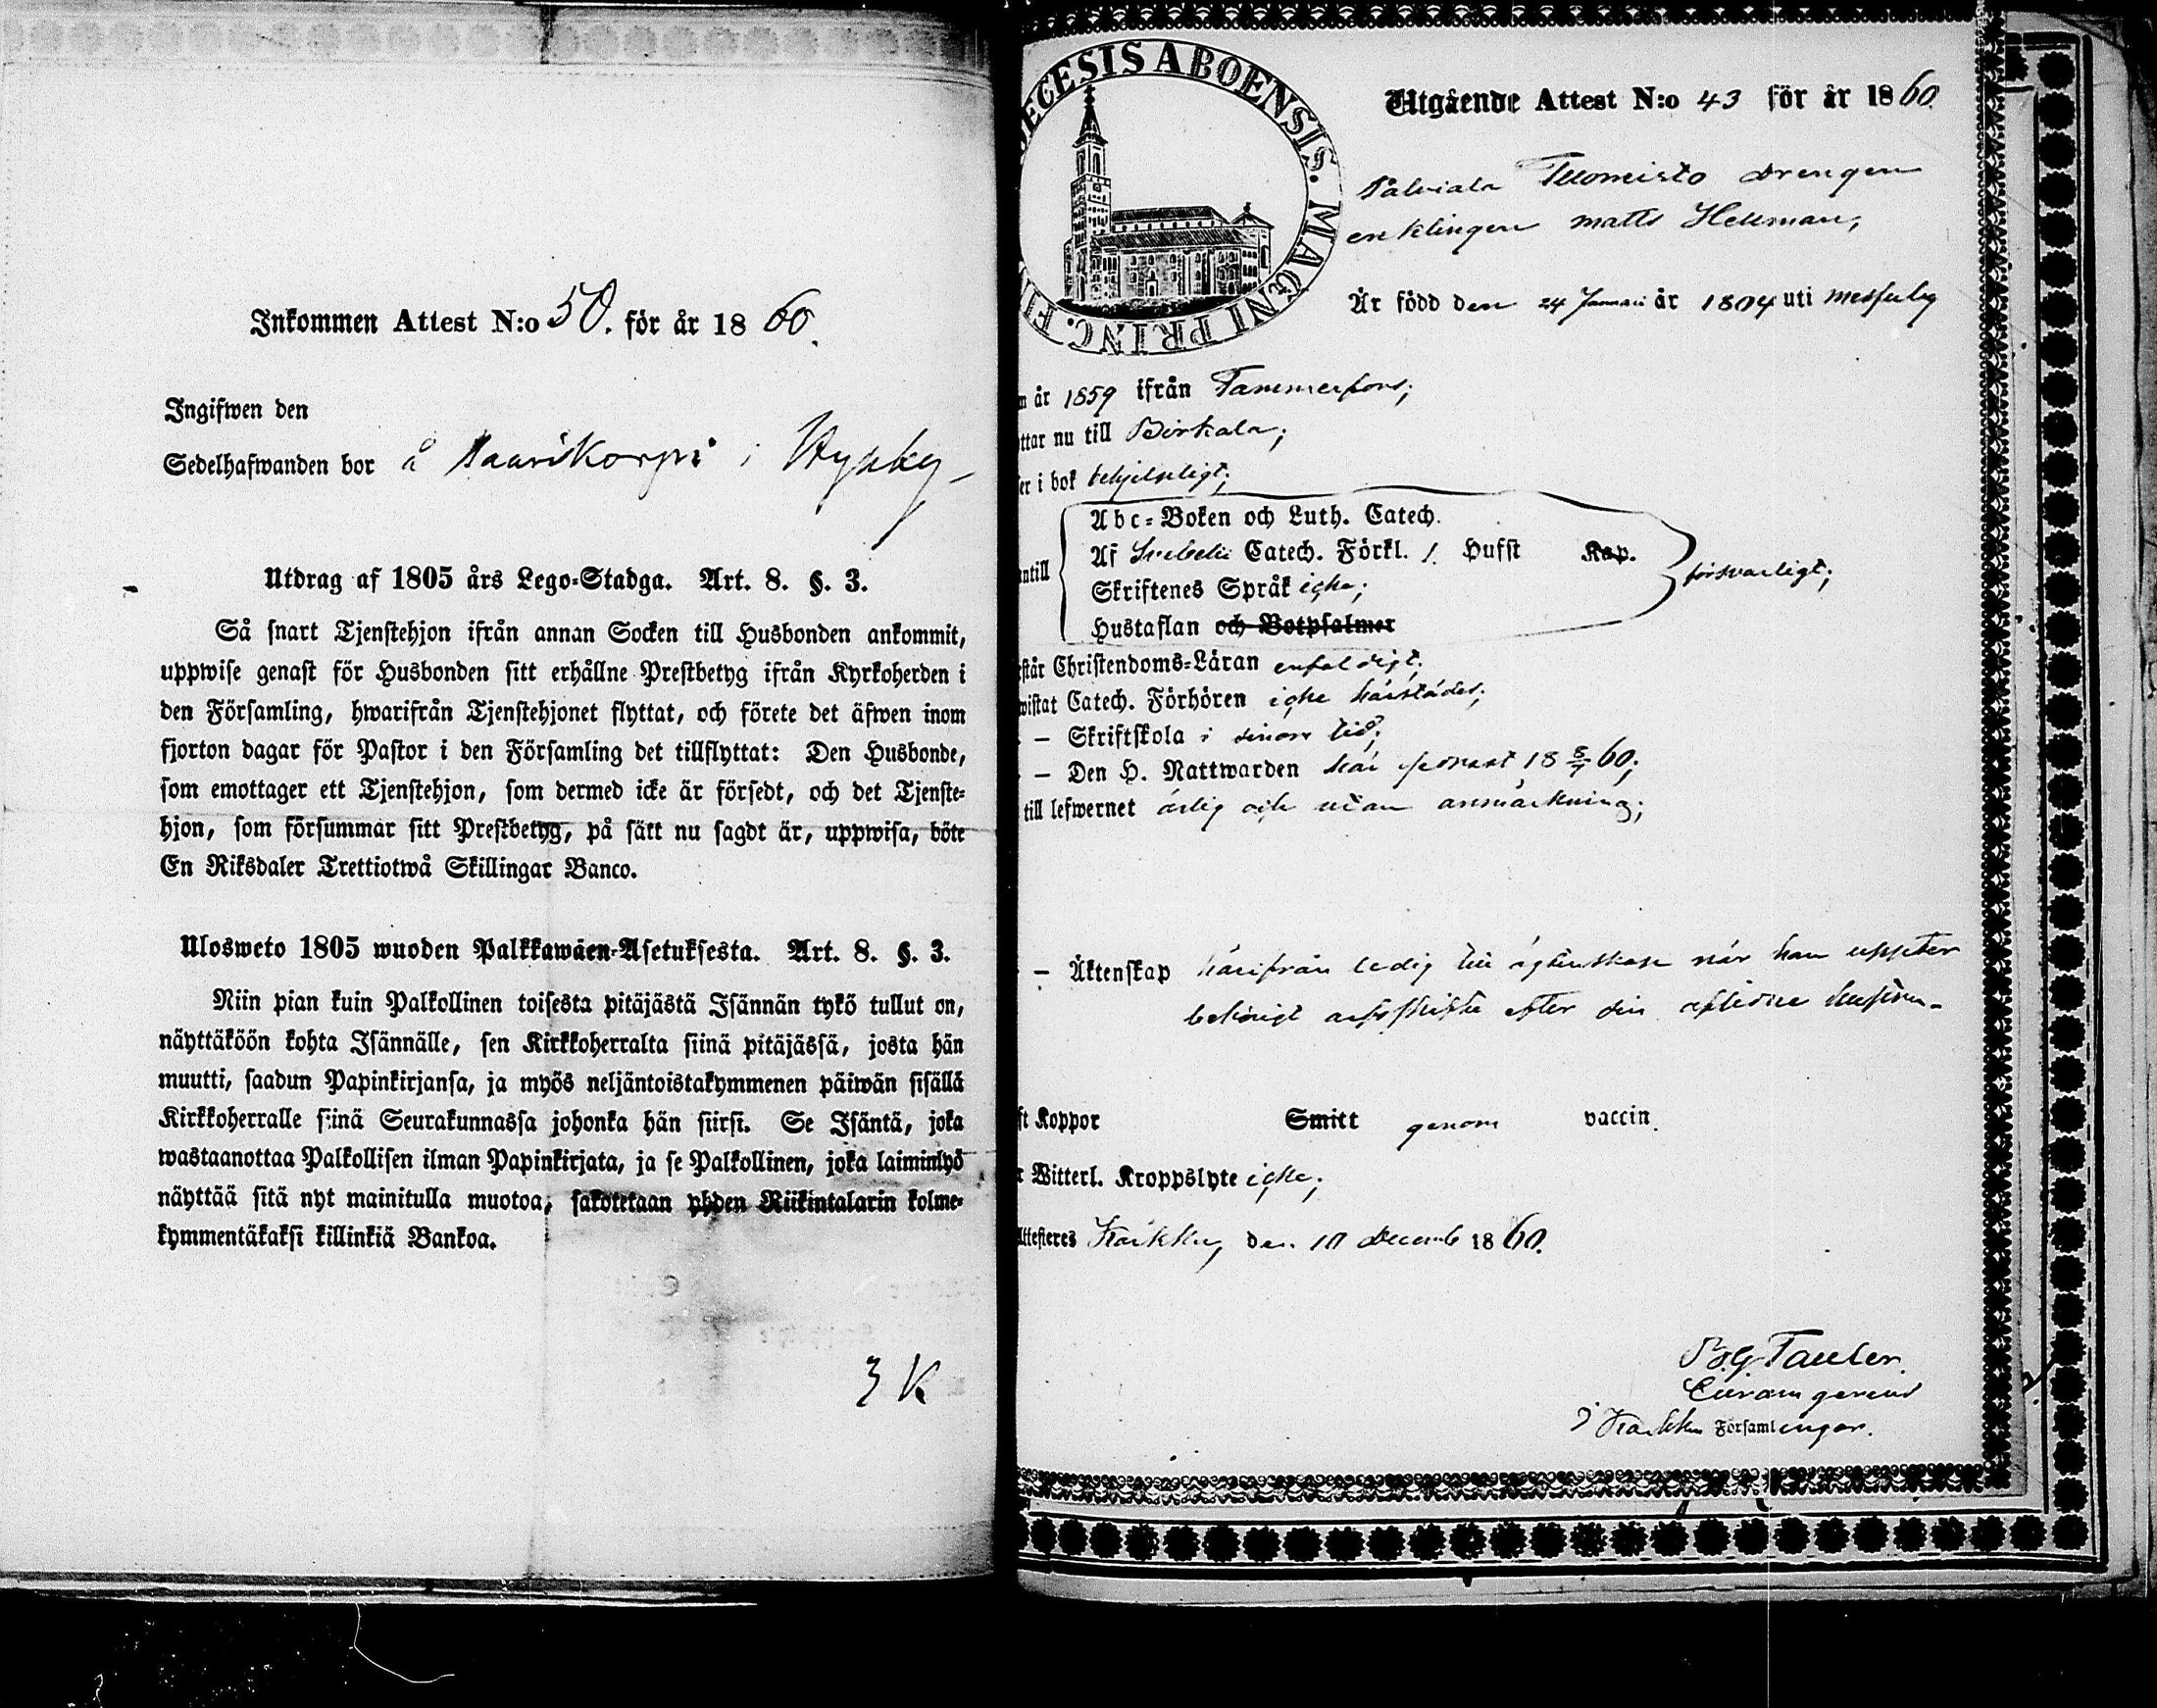 Inkommen Attest N:o 50. för år 1860.
Ingifwen den
Sedelhafwanden bor å Kaarikorpi i
Utdrag af 1805 års Lego-Stadga. Art. 8. §. 3.
Så snart Tjenstehjon ifrån annan Socken till Husbonden ankommit,
uppwise genast för Husbonden sitt erhållne Prestbetyg ifrån Kyrkoherden i
den Församling, hwarifrån Tjenstehjonet flyttat, och förete det äfwen inom
fjorton dagar för Pastor i den Församling det tillflyttat: Den Husbonde,
som emottager ett Tjenstehjon, som dermed icke är försedt, och det Tjenste-
hjon, som försummar sitt Prestbetyg, på sätt nu sagdt är, uppwisa, böte
En Riksdaler Trettiotwå Skillingar Banco.
Ulosweto 1805 wuoden Palkkawäen-Asetuksesta. Art. 8. §. 3.
Niin pian kuin Palkollinen toisesta pitäjästä Isännän tykö tullut on,
näyttäköön kohta Isännälle, sen Kirkkoherralta siinä pitäjässä, josta hän
muutti, saadun Papinkirjansa, ja myös neljäntoistakymmenen päiwän sisällä
Kirkkoherralle siinä Seurakunnassa johonka hän siirsi. Se Isäntä, joka
wastaanottaa Palkollisen ilman Papinkirjata, ja se Palkollinen, joka laiminlyö
näyttää sitä nyt mainitulla muotoa, sakotetaan yhden Riikintalarin kolme-
kymmentäkaksi killinkiä Bankoa.
3 K
ECESIS ABOENSIS. MAGNI PRINC. FI
Utgående Attest N:o 43 för år 1860.
Palviala Tuomisto drengen
enklingen Matts Hellman,
Är född den 24 Januari år 1804 uti Messuby
n år 1859 ifrån Tammerfors;
ttar nu till Birkala;
er i bok behjelpligt;
ntill
Abc-Boken och Luth. Catech.
Af Svebelii Catech. Förkl. 1. Hufst Kap.
Skriftenes Språk icke;
Hustaflan och Botpsalmer
försvarligt;
står Christendoms-Läran enfaldigt;
wistat Catech. Förhören icke härstädes;
– Skriftskola i sinom tid;
– Den H. Nattwarden här sednast 18 8/7 60;
till lefwernet ärlig och utan anmärkning;
– Äktenskap härifrån ledig till ägtenskap när han uppter
behörigt arfsskifte efter sin aflidne hustru-
ft Koppor Smitt genom vaccin.
r Witterl. Kroppslyte icke;
Attesteres Karkku, den 10 Decemb 1860.
Tauler.
Curam gerens
i Karkku Församlingar.